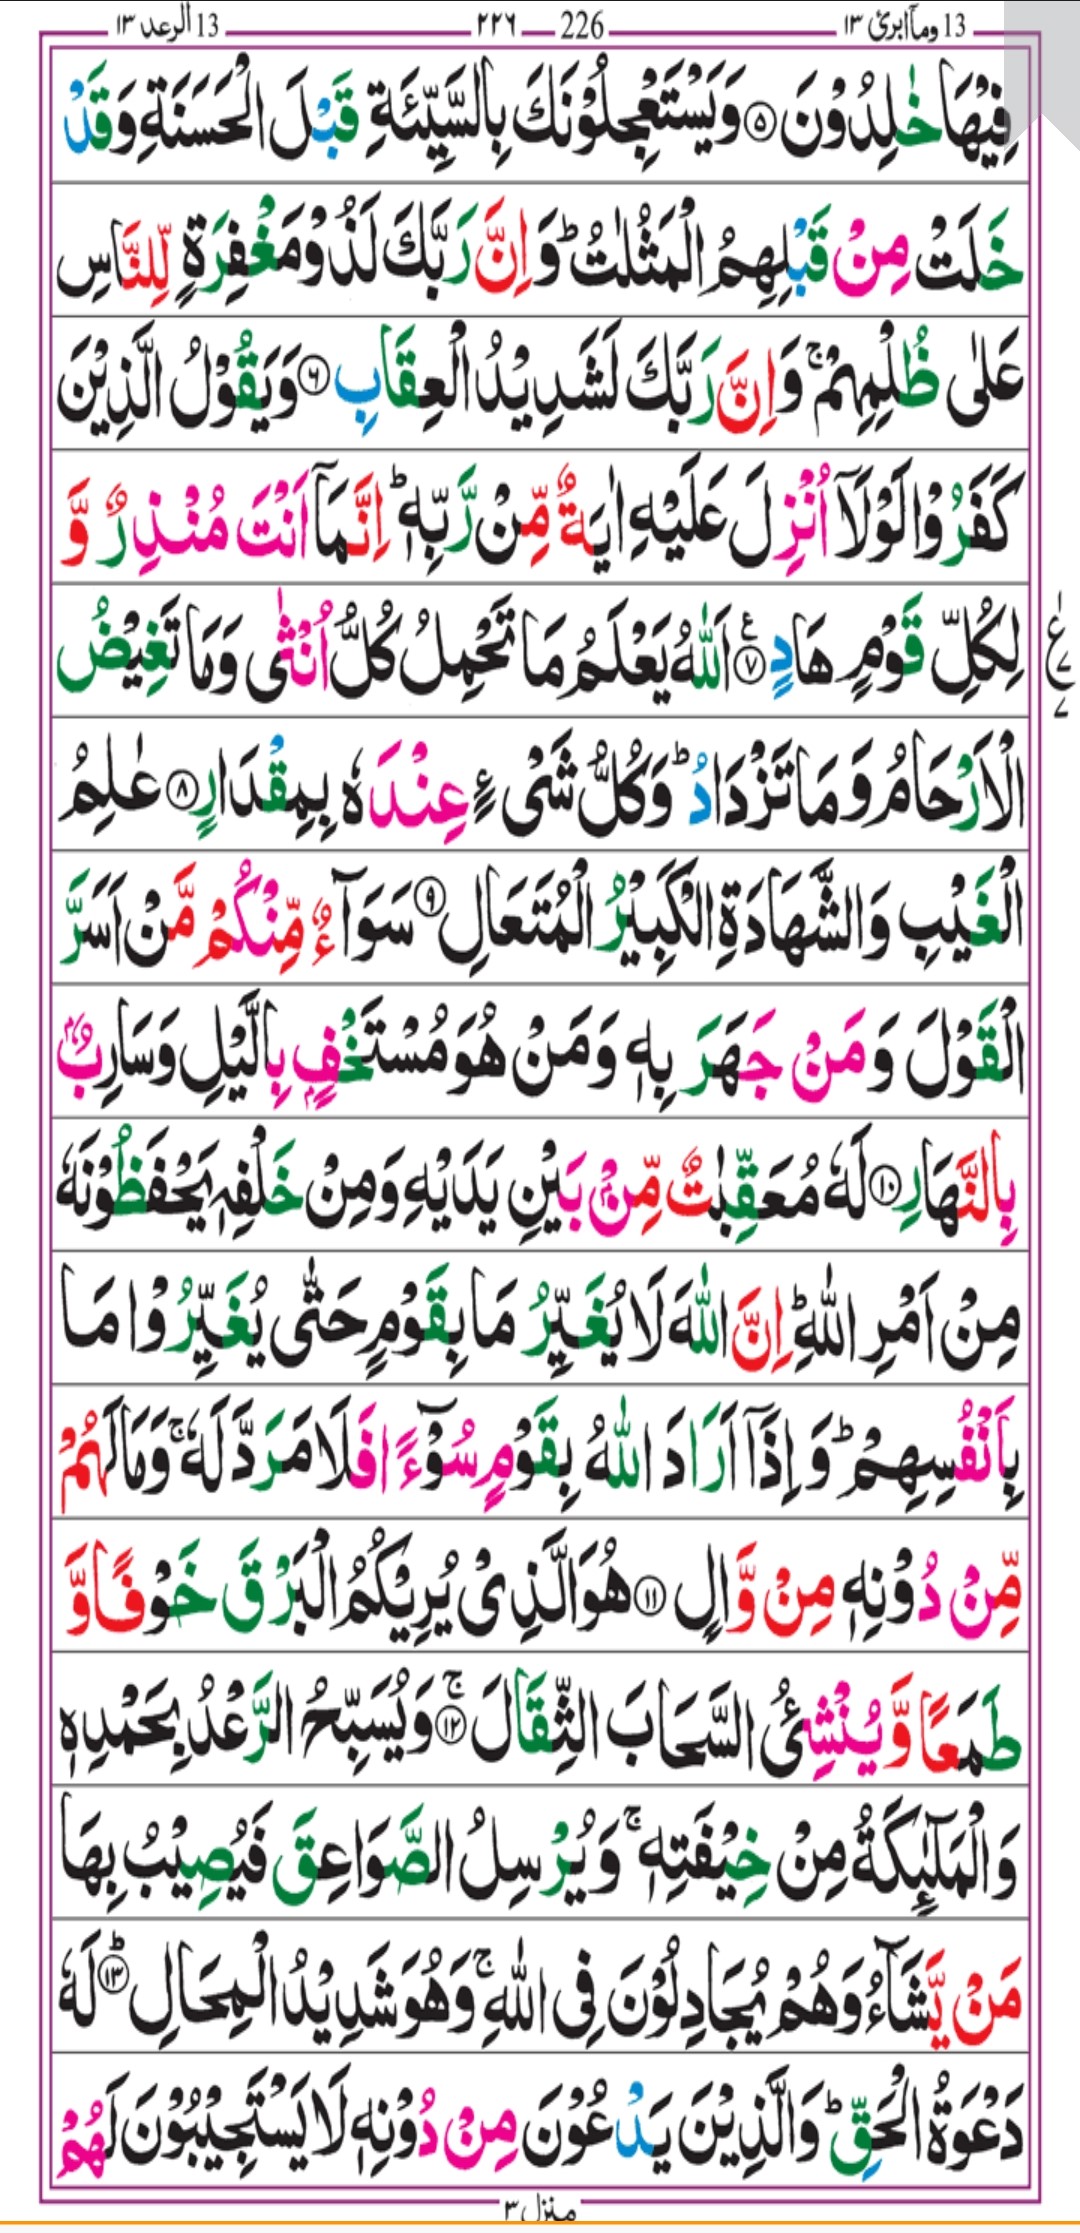 13 وماۤابرئ ١٣ 226 ٢٢٦ 13 الرعد ١٣
فِيْهَا خٰلِدُوْنَ ۝٥ وَيَسْتَعْجِلُوْنَكَ بِالسَّيِّئَةِ قَبْلَ الْحَسَنَةِ وَقَدْ
خَلَتْ مِنْ قَبْلِهِمُ الْمَثُلٰتُ ؕ وَ اِنَّ رَبَّكَ لَذُوْ مَغْفِرَةٍ لِّلنَّاسِ
عَلٰى ظُلْمِهِمْ ۚ وَاِنَّ رَبَّكَ لَشَدِيْدُ الْعِقَابِ ۝٦ وَيَقُوْلُ الَّذِيْنَ
كَفَرُوْا لَوْلَاۤ اُنْزِلَ عَلَيْهِ اٰيَةٌ مِّنْ رَّبِّهٖ ؕ اِنَّمَاۤ اَنْتَ مُنْذِرٌ وَّ
لِكُلِّ قَوْمٍ هَادٍ ۝٧ ع اَللّٰهُ يَعْلَمُ مَا تَحْمِلُ كُلُّ اُنْثٰى وَمَا تَغِيْضُ
ع ٧ ٧
الْاَرْحَامُ وَ مَا تَزْدَادُ ؕ وَكُلُّ شَیْءٍ عِنْدَهٗ بِمِقْدَارٍ ۝٨ عٰلِمُ
الْغَيْبِ وَالشَّهَادَةِ الْكَبِيْرُ الْمُتَعَالِ ۝٩ سَوَآءٌ مِّنْكُمْ مَّنْ اَسَرَّ
الْقَوْلَ وَ مَنْ جَهَرَ بِهٖ وَمَنْ هُوَ مُسْتَخْفٍۭ بِالَّيْلِ وَسَارِبٌۢ
بِالنَّهَارِ ۝١٠ لَهٗ مُعَقِّبٰتٌ مِّنْۢ بَيْنِ يَدَيْهِ وَمِنْ خَلْفِهٖ يَحْفَظُوْنَهٗ
مِنْ اَمْرِ اللّٰهِ ؕ اِنَّ اللّٰهَ لَا يُغَيِّرُ مَا بِقَوْمٍ حَتّٰى يُغَيِّرُوْا مَا
بِاَنْفُسِهِمْ ؕ وَ اِذَاۤ اَرَادَ اللّٰهُ بِقَوْمٍ سُوْٓءًا فَلَا مَرَدَّ لَهٗ ۚ وَمَا لَهُمْ
مِّنْ دُوْنِهٖ مِنْ وَّالٍ ۝١١ هُوَ الَّذِیْ يُرِيْكُمُ الْبَرْقَ خَوْفًا وَّ
طَمَعًا وَّ يُنْشِئُ السَّحَابَ الثِّقَالَ ۝١٢ ۚ وَيُسَبِّحُ الرَّعْدُ بِحَمْدِهٖ
وَالْمَلٰٓئِكَةُ مِنْ خِيْفَتِهٖ ۚ وَيُرْسِلُ الصَّوَاعِقَ فَيُصِيْبُ بِهَا
مَنْ يَّشَآءُ وَهُمْ يُجَادِلُوْنَ فِی اللّٰهِ ۚ وَهُوَ شَدِيْدُ الْمِحَالِ ۝١٣ ؕ لَهٗ
دَعْوَةُ الْحَقِّ ؕ وَالَّذِيْنَ يَدْعُوْنَ مِنْ دُوْنِهٖ لَا يَسْتَجِيْبُوْنَ لَهُمْ
منزل ٣